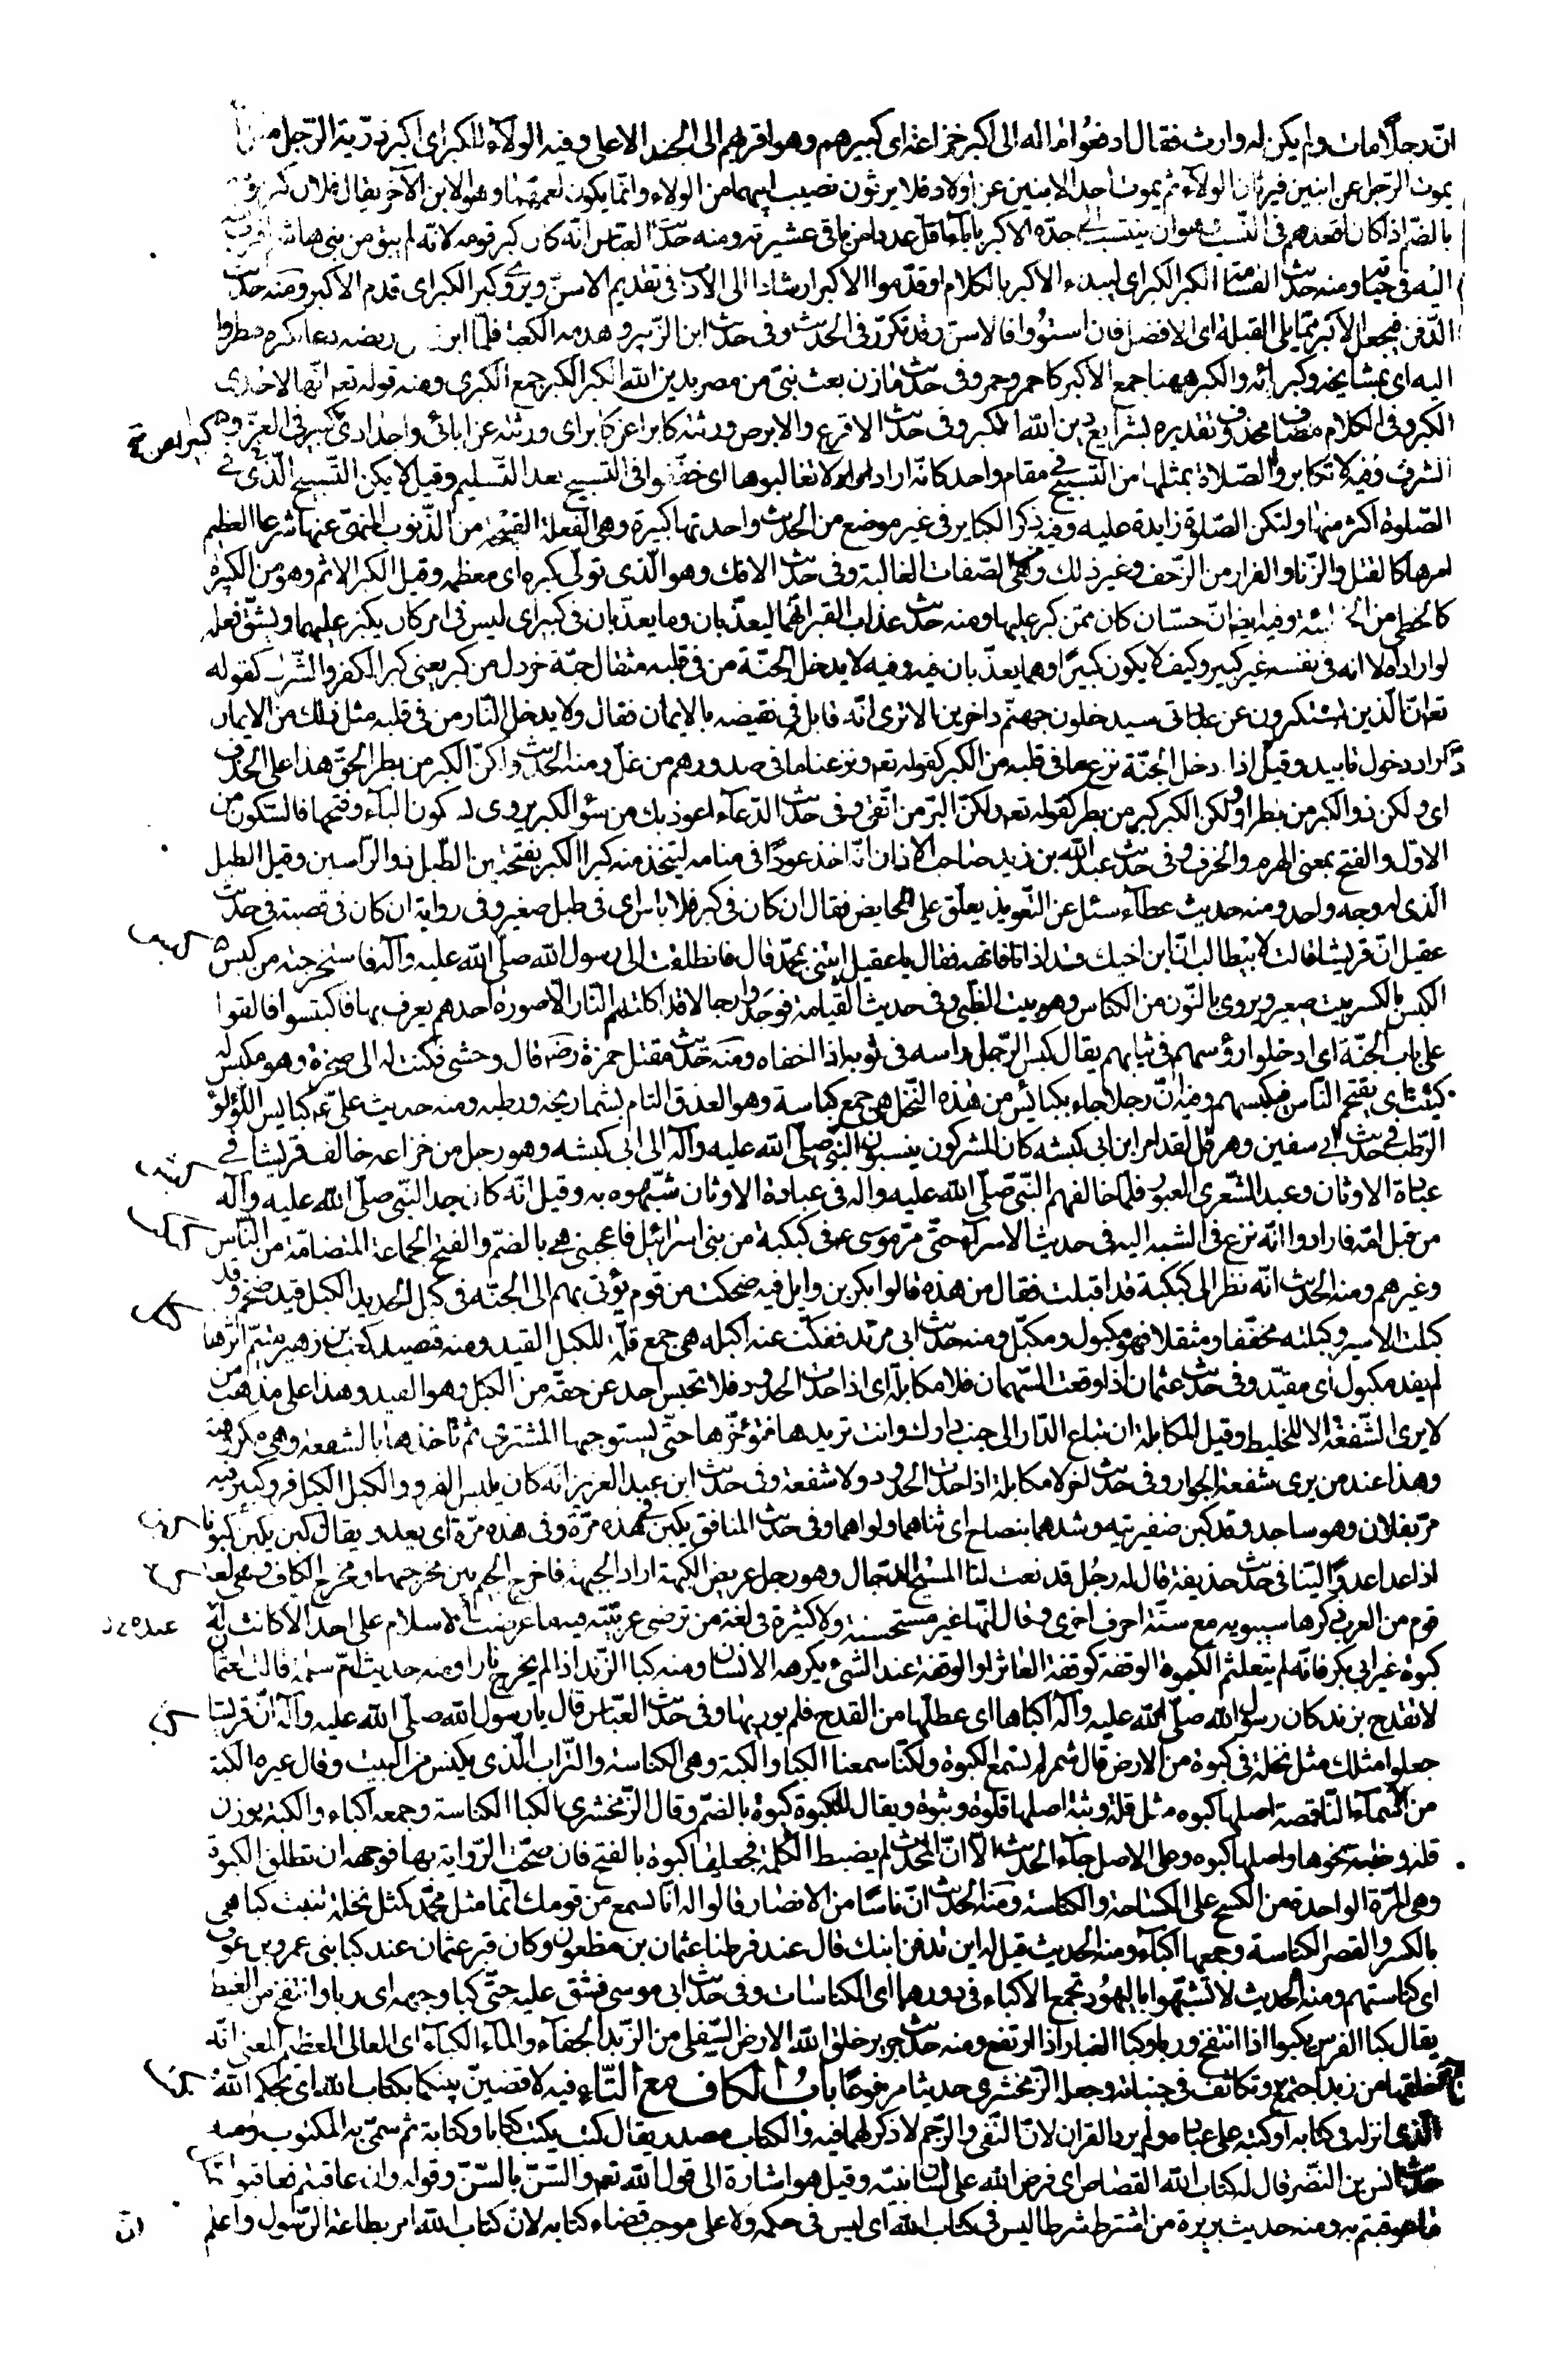 انّ رجلاً مات ولم يكن له وارث فقال ادفعوا ماله الى اكبر خزاعة اى كبيرهم وهو اقربهم الى الجد الاعلى وفيه الولاء للكبر اى اكبر ذرّية الرّجل
يموت الرّجل عن ابنين فيرثان الولاء ثم يموت احد الابنين عن اولاد فلا يرثون نصيب ابيهما من الولاء وانّما يكون لعمّهما وهو الابن الآخر يقال فلان كبر
بالضمّ اذا كان اقعدهم فى النّسب وهو ان ينتسب الى جدّه الاكبر باباء اقل عددا من باقى عشيرته ومنه حديث العبّاس انّه كان كبر قومه لانّه لم يبق من بنى هاشم اقرب
اليه فى حياته ومنه حديث القسامة الكبر الكبر اى ليبدء الاكبر بالكلام او قدّموا الاكبر ارشادا الى الادب فى تقديم الاسنّ ويروى كبّر الكبر اى قدم الاكبر ومنه حديث
الدّفن فيجعل الاكبر ممّا يلى القبلة اى الافضل فان استووا فالاسنّ وقد تكرّر فى الحديث وفى حديث ابن الزّبير وهدمه الكعبة فلمّا ابرز عن ربضه دعا بكبره فنظروا
اليه اى بمشايخه وكبرائه والكبر ههنا جمع الاكبر كاحمر وحمر وفى حديث مازن بعث نبىّ من مضر بدين الله الكبر الكبر جمع الكبرى ومنه قوله تعه انّها لاحدى
الكبر وفى الكلام مضاف محذوف تقديره بشرايع دين الله الكبر وفى حديث الاقرع والابرص ورثته كابرا عن كابر اى ورثته عن ابائى واجدادى كبير عن كبير فى العزّ و
الشرف وفيه لا تكابروا الصّلاة بمثلها من التسبيح فى مقام واحد كانّه اراد لا تغالبوها اى خفّفوا فى التسبيح بعد التّسليم وقيل لا يكن التّسبيح الّذى فى
الصّلوة اكثر منها ولتكن الصّلوة زايدة عليه وفيه ذكر الكباير فى غير موضع من الحديث واحدتها كبيرة وهى الفعلة القبيحة من الذّنوب المنهىّ عنها شرعا العظيم
امرها كالقتل والزّنا والفرار من الزّحف وغير ذلك وهى من الصّفات الغالبة وفى حديث الافك وهو الّذى تولّى كبره اى معظمه وقيل الكبر الاثم وهو من الكبيرة
كالخطئ من الخطيئة وفيه ايضا انّ حسّان كان ممّن كبر عليها ومنه حديث عذاب القبر انّهما ليعذّبان وما يعذّبان فى كبير اى ليس فى امر كان يكبر عليهما ويشقّ فعله
لو اراداه لا انه فى نفسه غير كبير وكيف لا يكون كبيرًا وهما يعذّبان فيه وفيه لا يدخل الجنّة من فى قلبه مثقال حبّة خردل من كبر يعنى كبر الكفر والشّرك كقوله
تعه انّ الّذين يستكبرون عن عبادتى سيدخلون جهنّم داخرين الا ترى انّه قابل فى نقيضه بالايمان فقال ولا يدخل النّار من فى قلبه مثل ذلك من الايمان
اراد دخول تابيد وقيل اذا دخل الجنّة نزع ما فى قلبه من الكبر كقوله تعه ونزعنا ما فى صدورهم من غلّ ومنه الحديث ولكنّ الكبر من بطر الحقّ هذا على الحذف
اى ولكن ذو الكبر من بطر او ولكن الكبر كبر من بطر كقوله تعه ولكنّ البرّ من اتّقى وفى حديث الدّعاء اعوذ بك من سوء الكبر يروى بسكون الباء وفتحها فالسّكون من
الاوّل والفتح بمعنى الهرم والخرف وفى حديث عبد الله بن زيد صاحب الاذان انّه اخذ عودًا فى منامه ليتّخذ منه كبرا الكبر بفتحتين الطّبل ذو الرّاسين وقيل الطبل
الّذى له وجه واحد ومنه حديث عطاء سئل عن التّعويذ يعلّق على الحايض فقال ان كان فى كبر فلا باس اى فى طبل صغير وفى رواية ان كان فى قصبة فى حديث
عقيل انّ قريشا قالت لابيطالب انّ ابن اخيك قد اذانا فانهه فقال يا عقيل ايتنى بمحمّد قال فانطلقت الى رسول الله صلّى الله عليه وآله فاستخرجته من كبس
الكبس بالكسر بيت صغير ويروى بالنّون من الكناس وهو بيت الظّبى وفى حديث القيامة فوجدوا رجالا قد اكلتهم النّار الّا صورة احدهم يعرف بها فاكتبسوا فالقوا
على باب الجنّة اى ادخلوا رؤسهم فى ثيابهم يقال كبس الرّجل راسه فى ثوبه اذا اخفاه ومنه حديث مقتل حمزة رضه قال وحشى فكمنت له الى صخرة وهو مكبس له
كتيت اى يقتحم النّاس فيكبسهم وفيه انّ رجلا جاء بكبائس من هذه النّخل هى جمع كباسة وهو العذق التام بشماريخه ورطبه ومنه حديث علىّ عه كبايس اللّؤلؤ
الرّطب فى حديث ابى سفين وهرقل لقد امر امر ابن ابى كبشه كان المشركون ينسبون النّبى صلّى الله عليه وآله الى ابى كبشه وهو رجل من خزاعه خالف قريشا فى
عبادة الاوثان وعبد الشّعرى العبور فلمّا خالفهم النّبى صلّى الله عليه واله فى عبادة الاوثان شبّهوه به وقيل انّه كان جد النّبى صلّى الله عليه وآله
من قبل امّه فارادوا انّه نزع فى الشبه اليه فى حديث الاسراء حتّى مرّ موسى عه فى كبكبة من بنى اسرائيل فاعجبنى هى بالضمّ والفتح الجماعة المتضامّة من النّاس
وغيرهم ومنه الحديث انّه نظر الى كبكبة قد اقبلت فقال من هذه قالوا بكر بن وايل فيه ضحكت من قوم يؤتى بهم الى الجنّه فى كبل الحديد الكبل قيد ضخم وقد
كبلت الاسير وكبلته مخفّفا ومثقلا فهو مكبول ومكبّل ومنه حديث ابى مرثد ففكّت عنه اكبله هى جمع قلّة للكبل القيد ومنه قصيد كعب بن زهير متيّم اثرها
لم يفد مكبول اى مقيّد وفى حديث عثمان اذا وقعت السّهمان فلا مكابلة اى اذا حدّت الحدود فلا تحبس احد عن حقّه من الكبل وهو القيد وهذا على مذهب من
لا يرى الشّفعة الا للخليط وقيل المكابلة ان تباع الدّار الى جنب دارك وانت تريدها فتؤخّرها حتّى يستوجبها المشترى ثم تاخذها بالشفعة وهى مكروهة
وهذا عند من يرى شفعة الجوار وفى حديث اخر لا مكابلة اذا حدّت الحدود ولا شفعة وفى حديث ابن عبد العزيز انّه كان يلبس الفرو والكبل الكبل فرو كبير فيه
مرّ بفلان وهو ساجد وقد كبن ضفيرتيه وشدهما بنصاح اى ثناهما ولواهما وفى حديث المنافق يكبن فى هذه مرّة وفى هذه مرّة اى يعدو يقال كبن يكبن كبونا
اذا عدا عدوًا ليّنا فى حديث حذيفة قال له رجُل قد نعت لنا المسيح الدّجال وهو رجل عريض الكبهة اراد الجبهة فاخرج الجيم بين مخرجها ومخرج الكاف وهى لغة
قوم من العرب ذكرها سيبويه مع ستّة احرف اخرى وقال انّها غير مستحسنة ولا كثيرة فى لغة من ترضى عربيّته فيه ما عرضت الاسلام على احد الّا كانت له
كبوة غير ابى بكر فانّه لم يتعلثم الكبوة الوقفة كوقفة العاثر او الوقفة عند الشىء يكرهه الانسان ومنه كبا الزّند اذا لم يخرج نارا ومنه حديث امّ سلمة قالت لعثمان
لا تقدح بزند كان رسول الله صلّى الله عليه وآله اكباها اى عطّلها من القدح فلم يور بها وفى حديث العبّاس قال يا رسول الله صلّى الله عليه وآله انّ قريشا
جعلوا مثلك مثل نخلة فى كبوة من الارض قال شمر لم نسمع الكبوة ولكنّا سمعنا الكبا والكبة وهى الكناسة والتّراب الّذى يكنس من البيت وقال غيره الكبة
من الاسماء النّاقصة اصلها كبوه مثل قلة وثبة اصلها قلوة وثبوة ويقال للكبوة كبوة بالضمّ وقال الزّمخشرى الكبا الكناسة وجمعه اكباء والكبة بوزن
قله وظبه نحوها واصلها كبوه وعلى الاصل جاء الحديث الّا انّ المحدّث لم يضبط الكلمة فجعلها كبوة بالفتح فان صحّت الرّواية بها فوجهه ان تطلق الكبوة
وهى المرّة الواحدة من الكسح على الكساحة والكناسة ومنه الحديث انّ ناسًا من الانصار قالوا له انّا نسمع من قومك انّما مثل محمّد كمثل نخلة تنبت كبا هى
بالكسر والقصر الكناسة وجمعها اكباء ومنه الحديث قيل له اين ندفن ابنك قال عند فرطنا عثمان بن مظعون وكان قبر عثمان عند كبا بنى عمرو بن عوف
اى كناستهم ومنه الحديث لا تشبّهوا باليهُود تجمع الاكباء فى دورها اى الكناسات وفى حديث ابى موسى فشقّ عليه حتّى كبا وجهه اى ربا وانتفخ من الغيظ
يقال كبا الفرس يكبوا اذا انتفخ وربا وكبا الغبار اذا ارتفع ومنه حديث جرير خلق الله الارض السّفلى من الزّبد الجفاء والماء الكباء اى العالى العظيم المعنى انّه
خلقها من زبد اجتمع وتكاثف فى جنباته وجعله الزّمخشرى حديثا مرفوعًا بابُ الكاف مع التّاء فيه لاقضينّ بينكما بكتاب الله اى بحكم الله
الّذى انزله فى كتابه او كتبه على عباده ولم يرد القران لانّ النّفى والرّجم لا ذكر لهما فيه والكتاب مصدر يقال كتب يكتب كتابا وكتابة ثم سمّى به المكتوب ومنه
حديث انس بن النّضر قال له كتاب الله القصاص اى فرض الله على لسان نبيّه وقيل هو اشارة الى قول الله تعه والسّنّ بالسّنّ وقوله وان عاقبتم فعاقبوا بمثل
ما عوقبتم به ومنه حديث بريرة من اشترط شرطا ليس فى كتاب الله اى ليس فى حكمه ولا على موجب قضاء كتابه لانّ كتاب الله امر بطاعة الرّسول واعلم
انّ